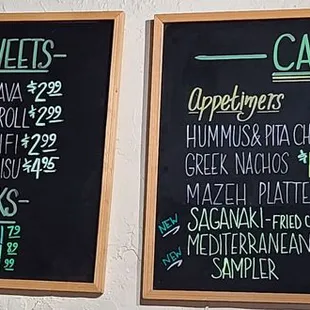 WEETS
AVA $2.99
ROLL $2.99
IFI $2.99
ISU $4.95
KS
9
.89
.99
CA
Appetizers
HUMMUS & PITA CH
GREEK NACHOS $
MAZEH PLATTE
NEW SAGANAKI - FRIED C
NEW MEDITERRANEAN
SAMPLER